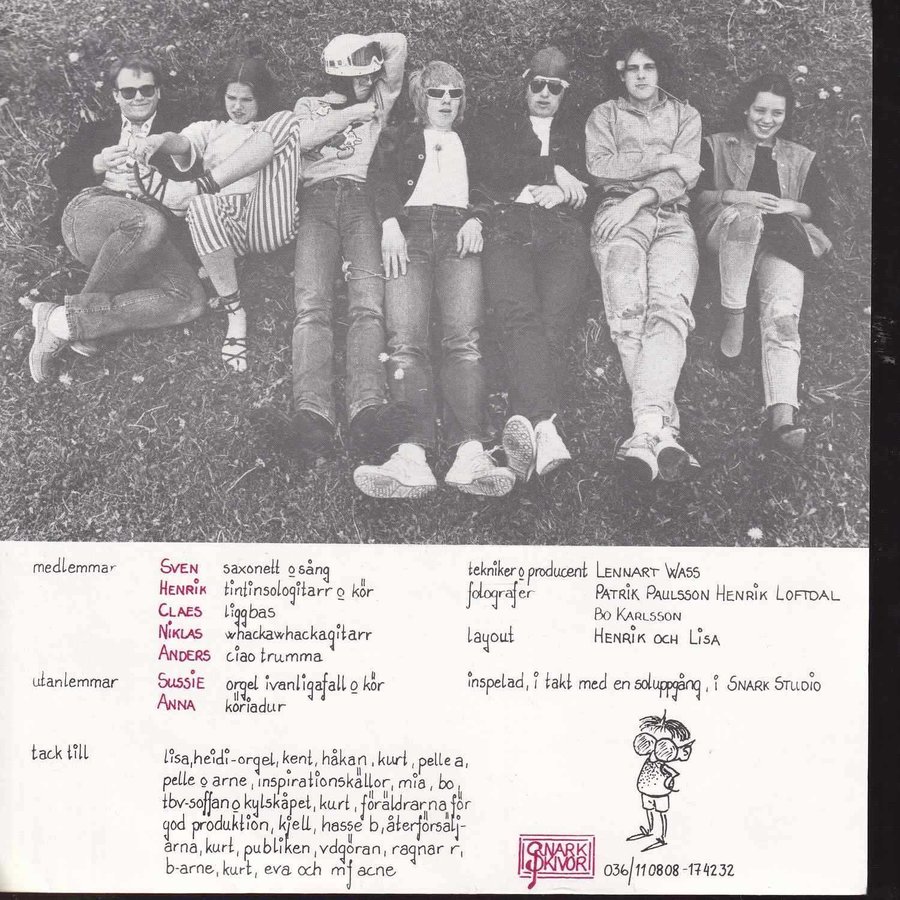 medlemmar SVEN saxonett o sång
HENRIK tintinsologitarr o kör
CLAES liggbas
NIKLAS whackawhackagitarr
ANDERS ciao trumma
utanlemmar SUSSIE orgel ivanligafall o kör
ANNA köriadur
tack till lisa, heidi-orgel, kent, håkan, kurt, pelle a,
pelle o arne, inspirationskällor, mia, bo,
tbv-soffan o kylskåpet, kurt, föräldrarna för
god produktion, kjell, hasse b, återförsälj-
arna, kurt, publiken, vdgöran, ragnar r,
b-arne, kurt, eva och mf acne
tekniker o producent LENNART WASS
fotografer PATRIK PAULSSON HENRIK LOFTDAL
BO KARLSSON
layout HENRIK OCH LISA
inspelad, i takt med en soluppgång, i SNARK STUDIO
SNARK
SKIVOR
036/110808-174232